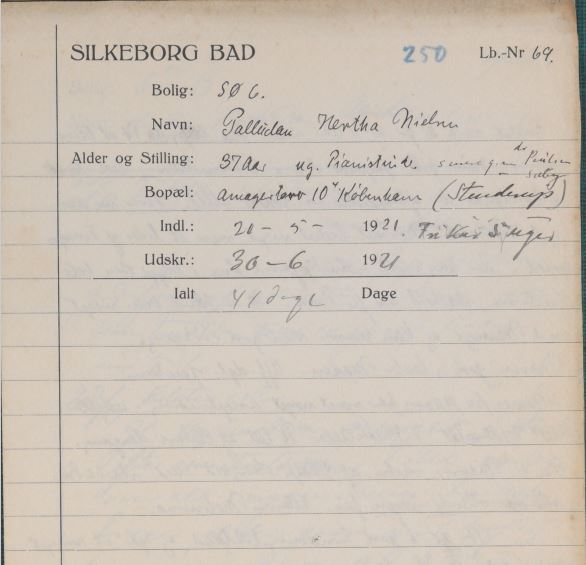 SILKEBORG BAD 250 Lb.-Nr 69.
Bolig: SØ 6.
Navn: Palludan Hertha Nielsen
Alder og Stilling: 37 Aar ug. Pianistinde.
Bopæl: Amagerbro 10 København (Stenderup)
Indl.: 20 - 5 - 1921. Fru Kai
Udskr.: 30 - 6 1921
Ialt 41 dage Dage